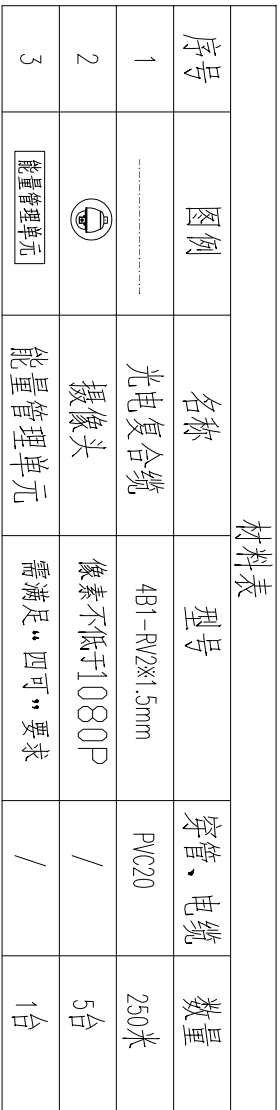 材料表
序号 图例 名称 型号 穿管、电缆 数量
1 光电复合缆 4B1-RV2※1.5mm PVC20 250米
2 摄像头 像素不低于1080P / 5台
3 能量管理单元 能量管理单元 需满足“四可”要求 / 1台